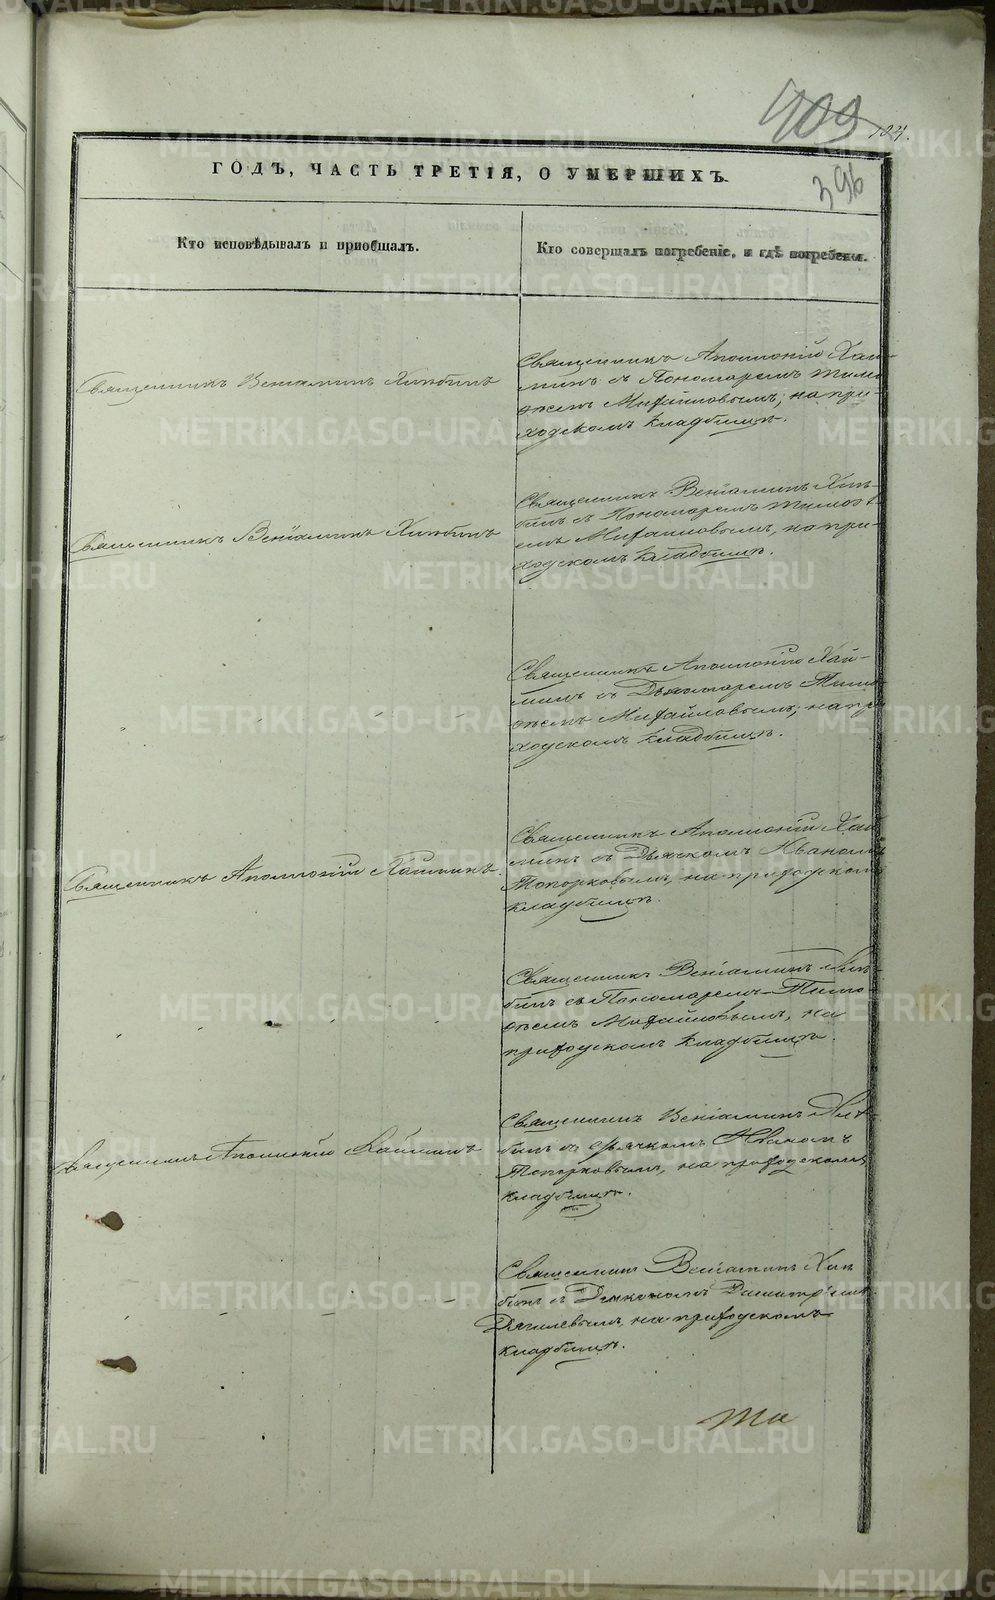 409
104.
396
ГОДЪ, ЧАСТЬ ТРЕТІЯ, О УМЕРШИХЪ.
Кто исповѣдывалъ и пріобщалъ.
Кто совершалъ погребеніе, и гдѣ погребены.
Священникъ Веніаминъ Хлыбинъ
Священникъ Аполлоній Хай-
минъ съ Пономаремъ Тимо-
ѳеемъ Михайловымъ, на при-
ходскомъ кладбищѣ.
Священникъ Веніаминъ Хлыбинъ
Священникъ Веніаминъ Хлы-
бинъ съ Пономаремъ Тимоѳе-
емъ Михайловымъ, на при-
ходскомъ кладбищѣ.
Священникъ Аполлоній Хай-
минъ съ Тимо-
ѳеемъ Михайловымъ, на при
ходскомъ кладбищѣ.
Священникъ Аполлоній Хайминъ.
Священникъ Аполлоній Хай
минъ съ Дьячкомъ Иваномъ
Топорковымъ, на приходскомъ
кладбищѣ.
Священникъ Веніаминъ Хлы-
бинъ съ Пономаремъ Тимо-
ѳеемъ Михайловымъ, на
приходскомъ кладбищѣ.
Священникъ Аполлоній Хайминъ
Священникъ Веніаминъ Хлы-
бинъ съ Дьячкомъ Иваномъ
Топорковымъ, на приходскомъ
кладбищѣ.
Священникъ Веніаминъ Хлы
бинъ съ Діакономъ Димитріемъ
на приходскомъ
кладбищѣ.
METRIKI.GASO-URAL.RU